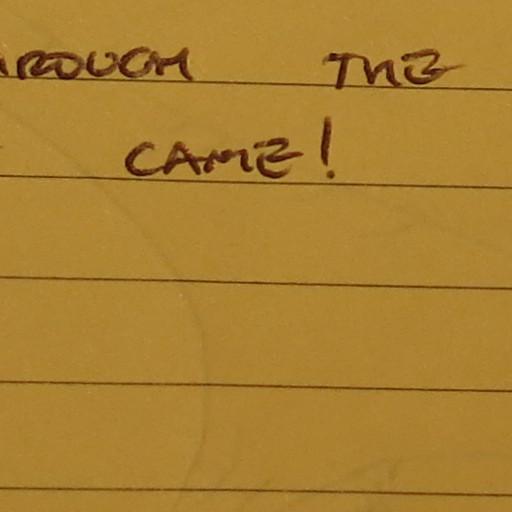 THROUGH THE
CAME!